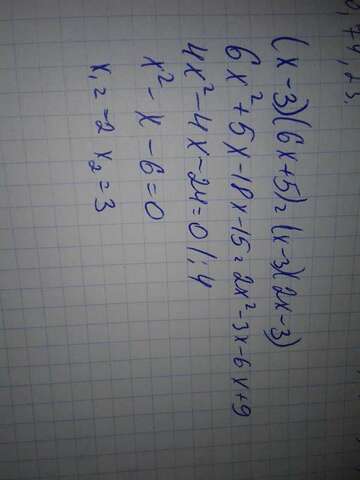 (x-3)(6x+5)=(x-3)(2x-3)
6x²+5x-18x-15=2x²-3x-6x+9
4x²-4x-24=0 |:4
x²-x-6=0
x₁=-2 x₂=3